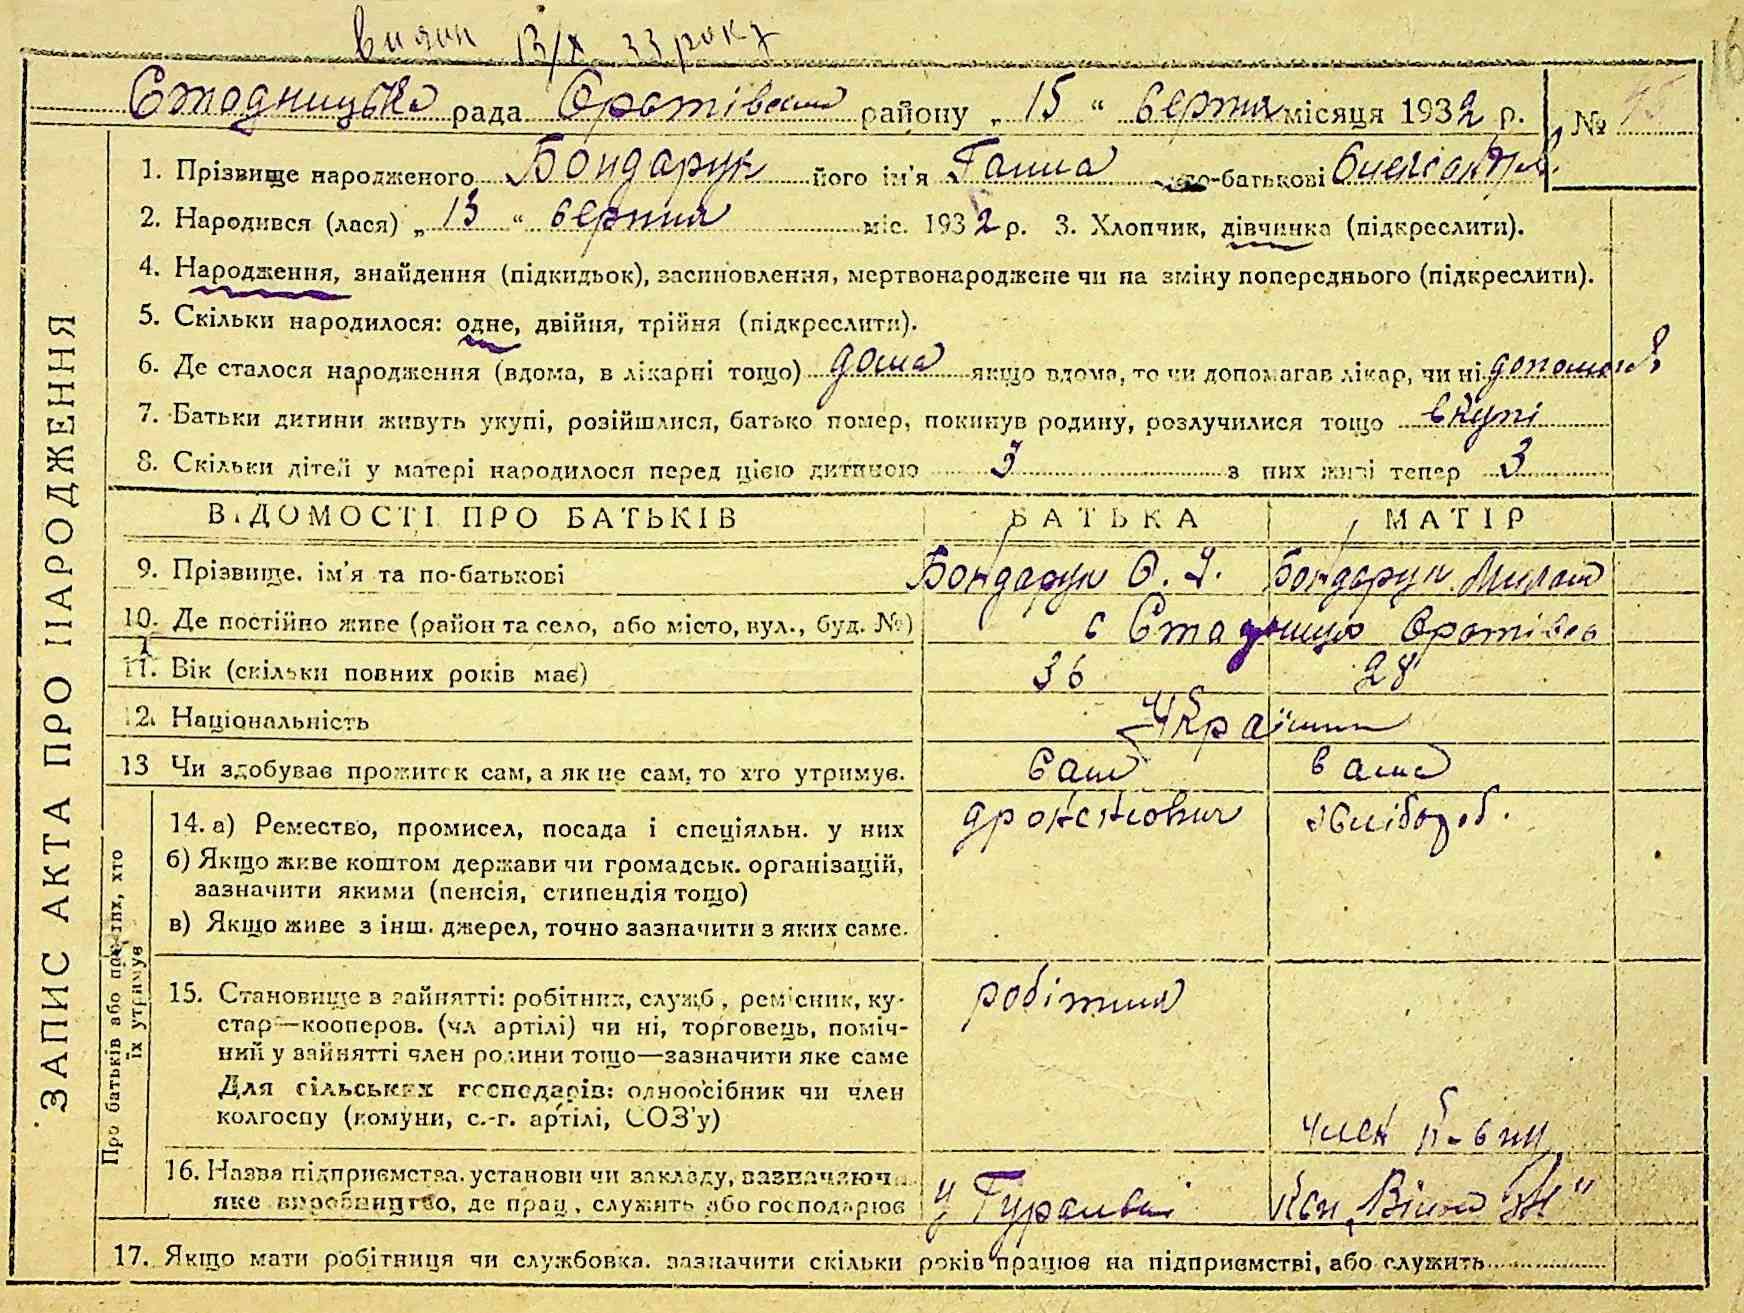 видан 13/X 33 року
Стадницька рада Оратівськ району „ 15 " серпня місяця 1932 р. №
1. Прізвище народженого Бондарук його ім'я Ганна по-батькові Олександр.
2. Народився (лася) „ 13 " серпня міс. 1932 р. 3. Хлопчик, дівчинка (підкреслити).
4. Народження, знайдення (підкидьок), засиновлення, мертвонароджене чи на зміну попереднього (підкреслити).
5. Скільки народилося: одне, двійня, трійня (підкреслити).
6. Де сталося народження (вдома, в лікарні тощо) дома якщо вдома, то чи допомагав лікар, чи ні допомаг
7. Батьки дитини живуть укупі, розійшлися, батько помер, покинув родину, розлучилися тощо вкупі
8. Скільки дітей у матері народилося перед цією дитиною 3 з них живі тепер 3
ВІДОМОСТІ ПРО БАТЬКІВ БАТЬКА МАТІР
9. Прізвище, ім'я та по-батькові Бондарук О. Бондарук
10. Де постійно живе (район та село, або місто, вул., буд. №) с Стадниця Оратівськ
11. Вік (скільки повних років має) 36 28
12. Національність Україн
13 Чи здобуває прожиток сам, а як не сам, то хто утримує. сам сама
14. а) Ремество, промисел, посада і спеціяльн. у них хлібороб.
б) Якщо живе коштом держави чи громадськ. організацій,
зазначити якими (пенсія, стипендія тощо)
в) Якщо живе з інш. джерел, точно зазначити з яких саме.
15. Становище в зайнятті: робітник, служб., ремісник, ку- робітник
стар—кооперов. (чл артілі) чи ні, торговець, поміч-
ний у зайнятті член родини тощо—зазначити яке саме
Для сільських господарів: одноосібник чи член
колгоспу (комуни, с.-г. артілі, СОЗ'у) член к-спу
16. Назва підприємства, установи чи закладу, зазначаючи
яке виробництво, де прац., служить або господарює у
17. Якщо мати робітниця чи службовка, зазначити скільки років працює на підприємстві, або служить
ЗАПИС АКТА ПРО НАРОДЖЕННЯ
Про батьків або про тих, хто
їх утримує